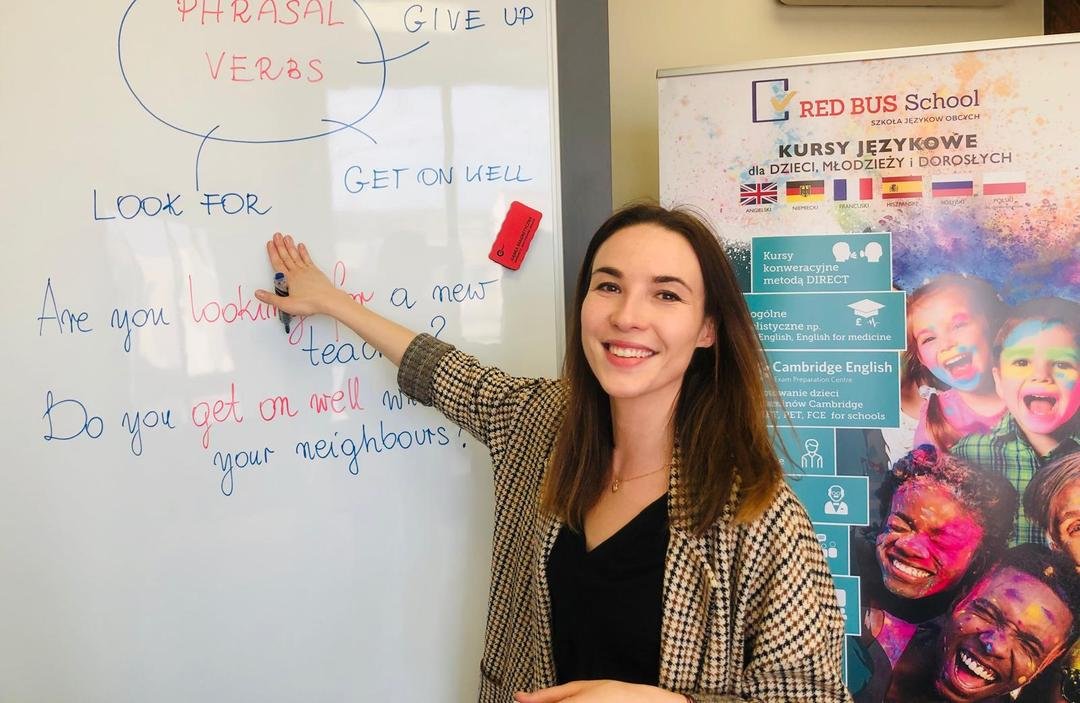 PHRASAL
VERBS
GIVE UP
LOOK FOR
GET ON WELL
Are you looking for a new
teac
?
Do you get on well
your neighbours?
RED BUS School
SZKOŁA JĘZYKÓW OBCYCH
KURSY JĘZYKOWE
dla DZIECI, MŁODZIEŻY i DOROSŁYCH
ANGIELSKI NIEMIECKI FRANCUSKI HISZPAŃSKI ROSYJSKI POLSKI
Kursy
konweracyjne
metodą DIRECT
ogólne
listyczne np.
English, English for medicine
Cambridge English
Exam Preparation Centre
dzieci
Cambridge
PET, FCE for schools